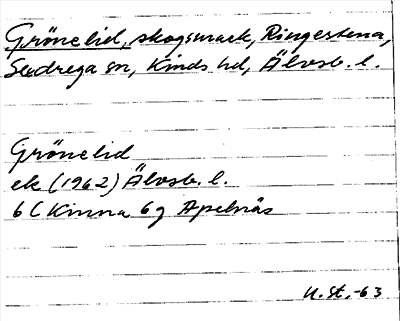 Grönelid, skogsmark, Ringestena,
Sexdrega sn, Kinds hd, Älvsb. l.
Grönelid
ek (1962) Älvsb. l.
6 C Kinna 6 g Apelnäs
U. St. -63